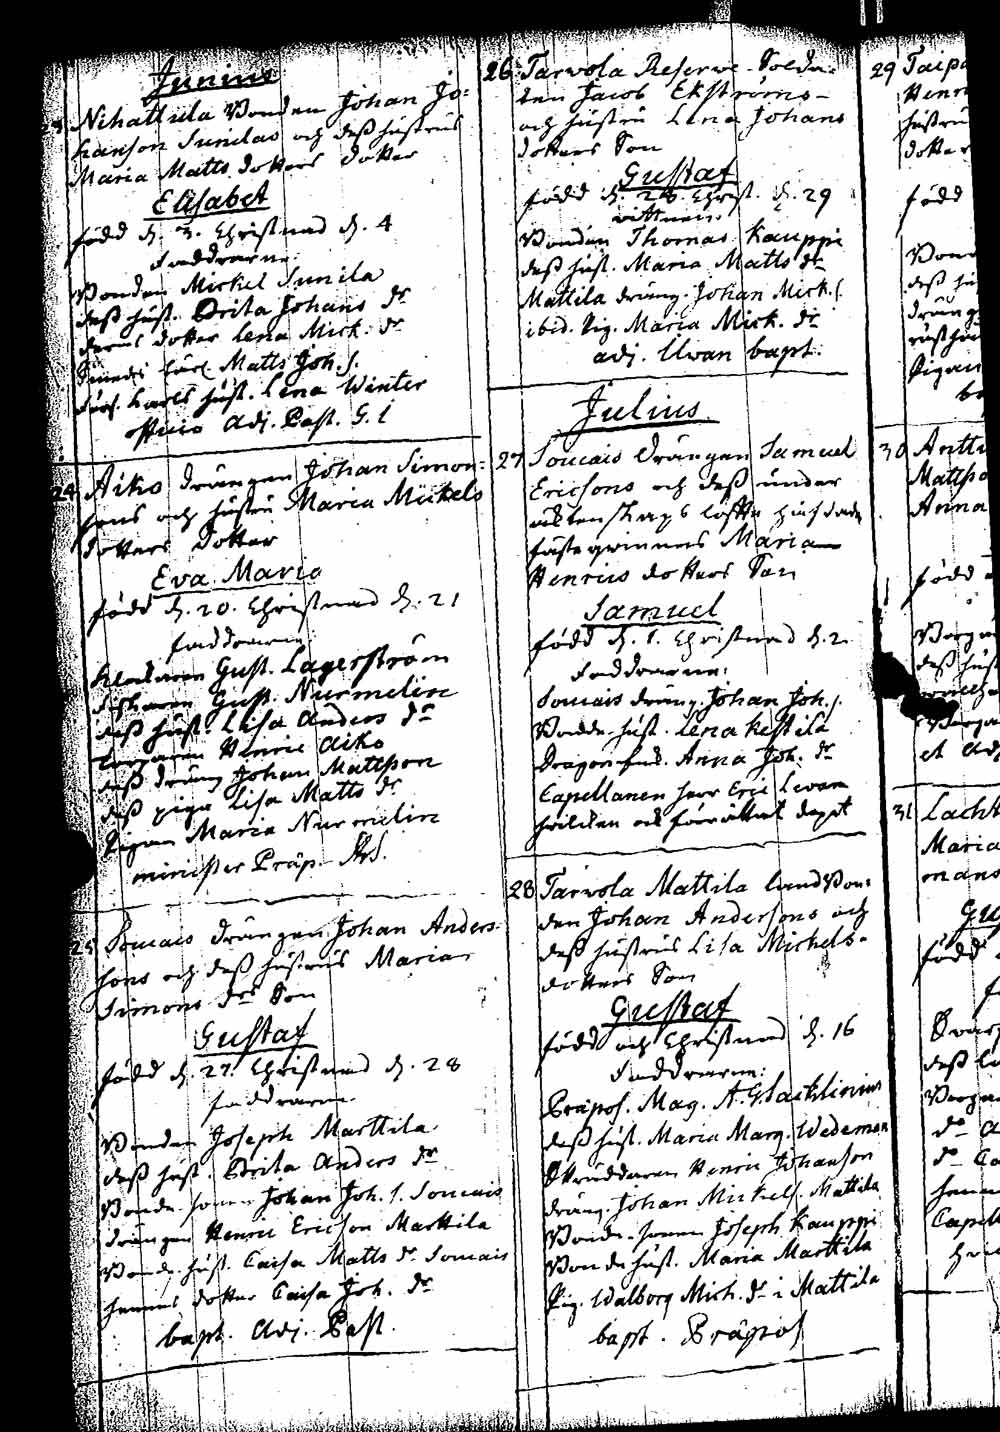 Junius
Nihattula Bonden Johan Jo=
hanson Sunilas och deß hustrus
Maria Matts dotters dotter
Elisabet
född d. 3. Christnad d. 4
Faddrarne:
Bonden Mickel Sunila
deß hust. Brita Johans dr
deras dotter Lena Mick. dr
Matts Joh. s.
hust. Lena Winter
Adj. Past. G. L
24 Aiko drängen Johan Simon=
sons och hustru Maria Mickels
dotters dotter
Eva Maria
född d. 20. Christnad d. 21
faddrarne:
Gust. Lagerström
Gust. Nurmelin
deß hust. Lisa Anders dr
Henric Aiko
deß dräng Johan Mattson
deß piga Lisa Matts dr
Pigan Maria Nurmelin
minister Præp.
25 Soucais drängen Johan Anders=
sons och deß hustrus Maria
Simons drs Son
Gustaf
född d. 27. Christnad d. 28
faddrarne
Bonden Joseph Marttila
deß hust. Brita Anders dr
Bonde sonen Johan Joh. s. Soucais
drängen Henric Ericson Marttila
Bonde hust. Caisa Matts dr Soucais
hennes dotter Caisa Joh. dr
bapt. Adj. Past.
26 Tarvola Reserve-Solda=
ten Jacob Ekströms
och hustru Lena Johans
dotters Son
Gustaf
född d. 28. Christ. d. 29
vittnen:
Bonden Thomas Kauppi
deß hust. Maria Matts dr
Mattila dräng. Johan Mick. s.
ibid. Pig. Maria Mick. dr
adj. Uwan bapt.
Julius
27 Soucais Drängen Samuel
Ericsons och deß under
ächtenskaps löfte
fästeqvinnas Maria
Henrics dotters Son
Samuel
född d. 1. Christnad d. 2
Faddrarne:
Soucais dräng. Johan Joh. s.
Bonde hust. Lena Kestila
Anna Joh. dr
Capellanen herr Eric
hvilken ock förrättat dopet
28 Tarvola Mattila landbon=
den Johan Andersons och
deß hustrus Lisa Mickels=
dotters Son
Gustaf
född och Christnad d. 16
Faddrarne:
Præpos. Mag. A. G.
deß hust. Maria Marg. Wedeman
Skräddaren Henric Johanson
dräng. Johan Mickels. Mattila
Bonde sonen Joseph Kauppi
Bonde hust. Maria Marttila
Pig. Walborg Mich. dr i Mattila
bapt. Præpos
29 Taipa
Henri
hustru
dotter
född
Bond
deß hu
dräng
Pigan
30 Antti
Mattso
Anna
född
deß hust
et Adj
31 Lacht
Maria
mans
Gu
född
deß
dr
dr
Capell